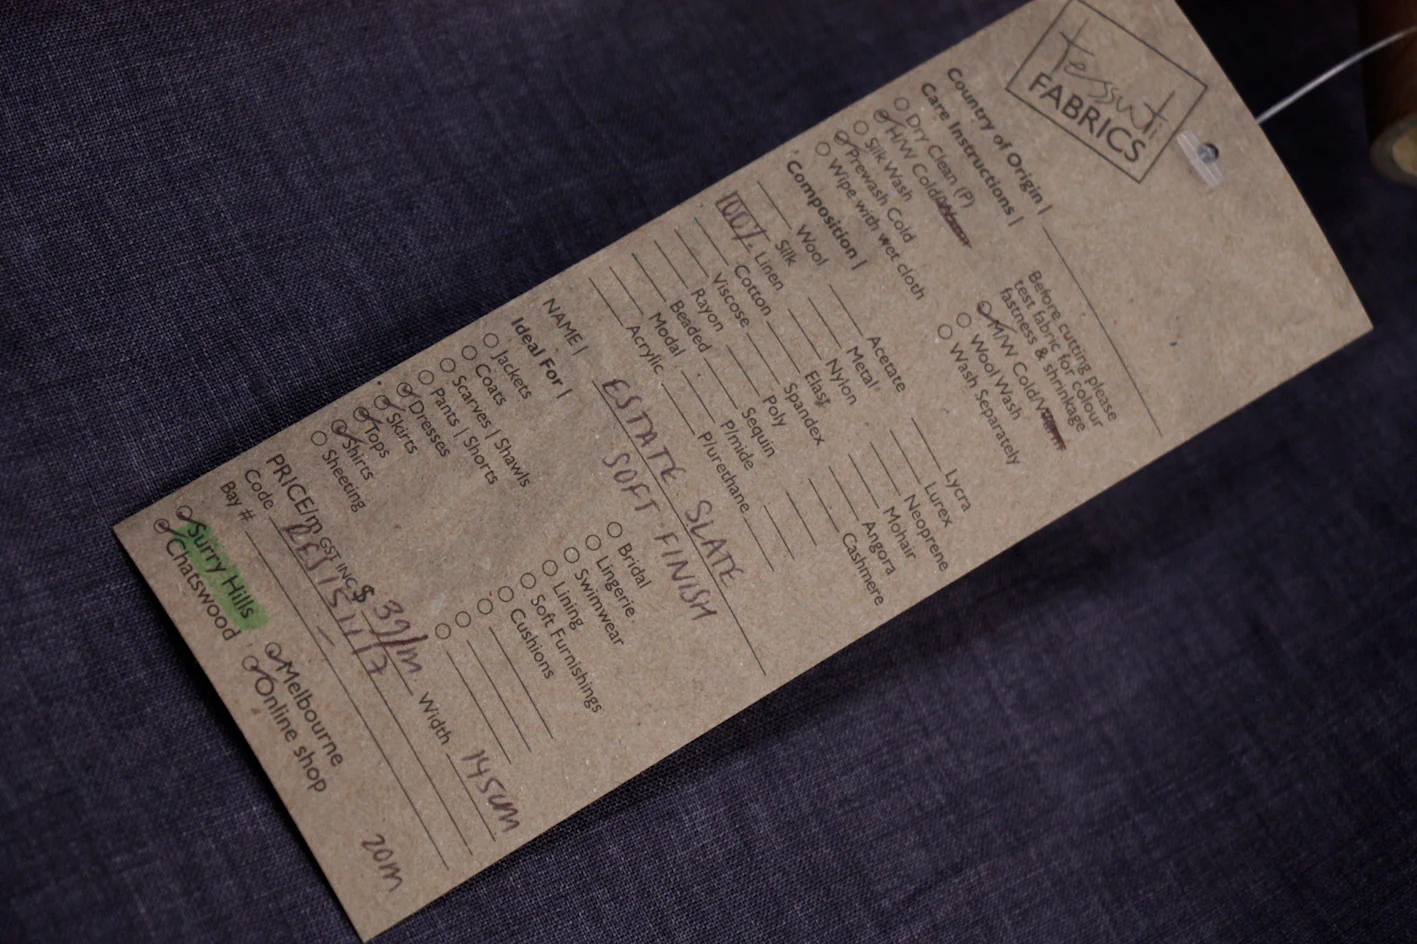 tessuti
FABRICS
Country of Origin |
Care Instructions |
Dry Clean (P)
H/W Cold/
Silk Wash
Prewash Cold
Wipe with wet cloth
Before cutting please
test fabric for colour
fastness & shrinkage
M/W Cold/
Wool Wash
Wash Separately
Composition |
Wool
Silk
100% Linen
Cotton
Viscose
Rayon
Beaded
Modal
Acrylic
Acetate
Metal
Nylon
Elast
Spandex
Poly
Sequin
P/mide
P/urethane
Lycra
Lurex
Neoprene
Mohair
Angora
Cashmere
NAME | ESTATE SLATE
SOFT FINISH
Ideal For |
Jackets
Coats
Scarves | Shawls
Pants | Shorts
Dresses
Skirts
Tops
Shirts
Sheeting
Bridal
Lingerie
Swimwear
Lining
Soft Furnishings
Cushions
PRICE/m GST INC $ 39/m Width 145cm
Code
Bay #
Surry Hills
Chatswood
Melbourne
Online shop
20m